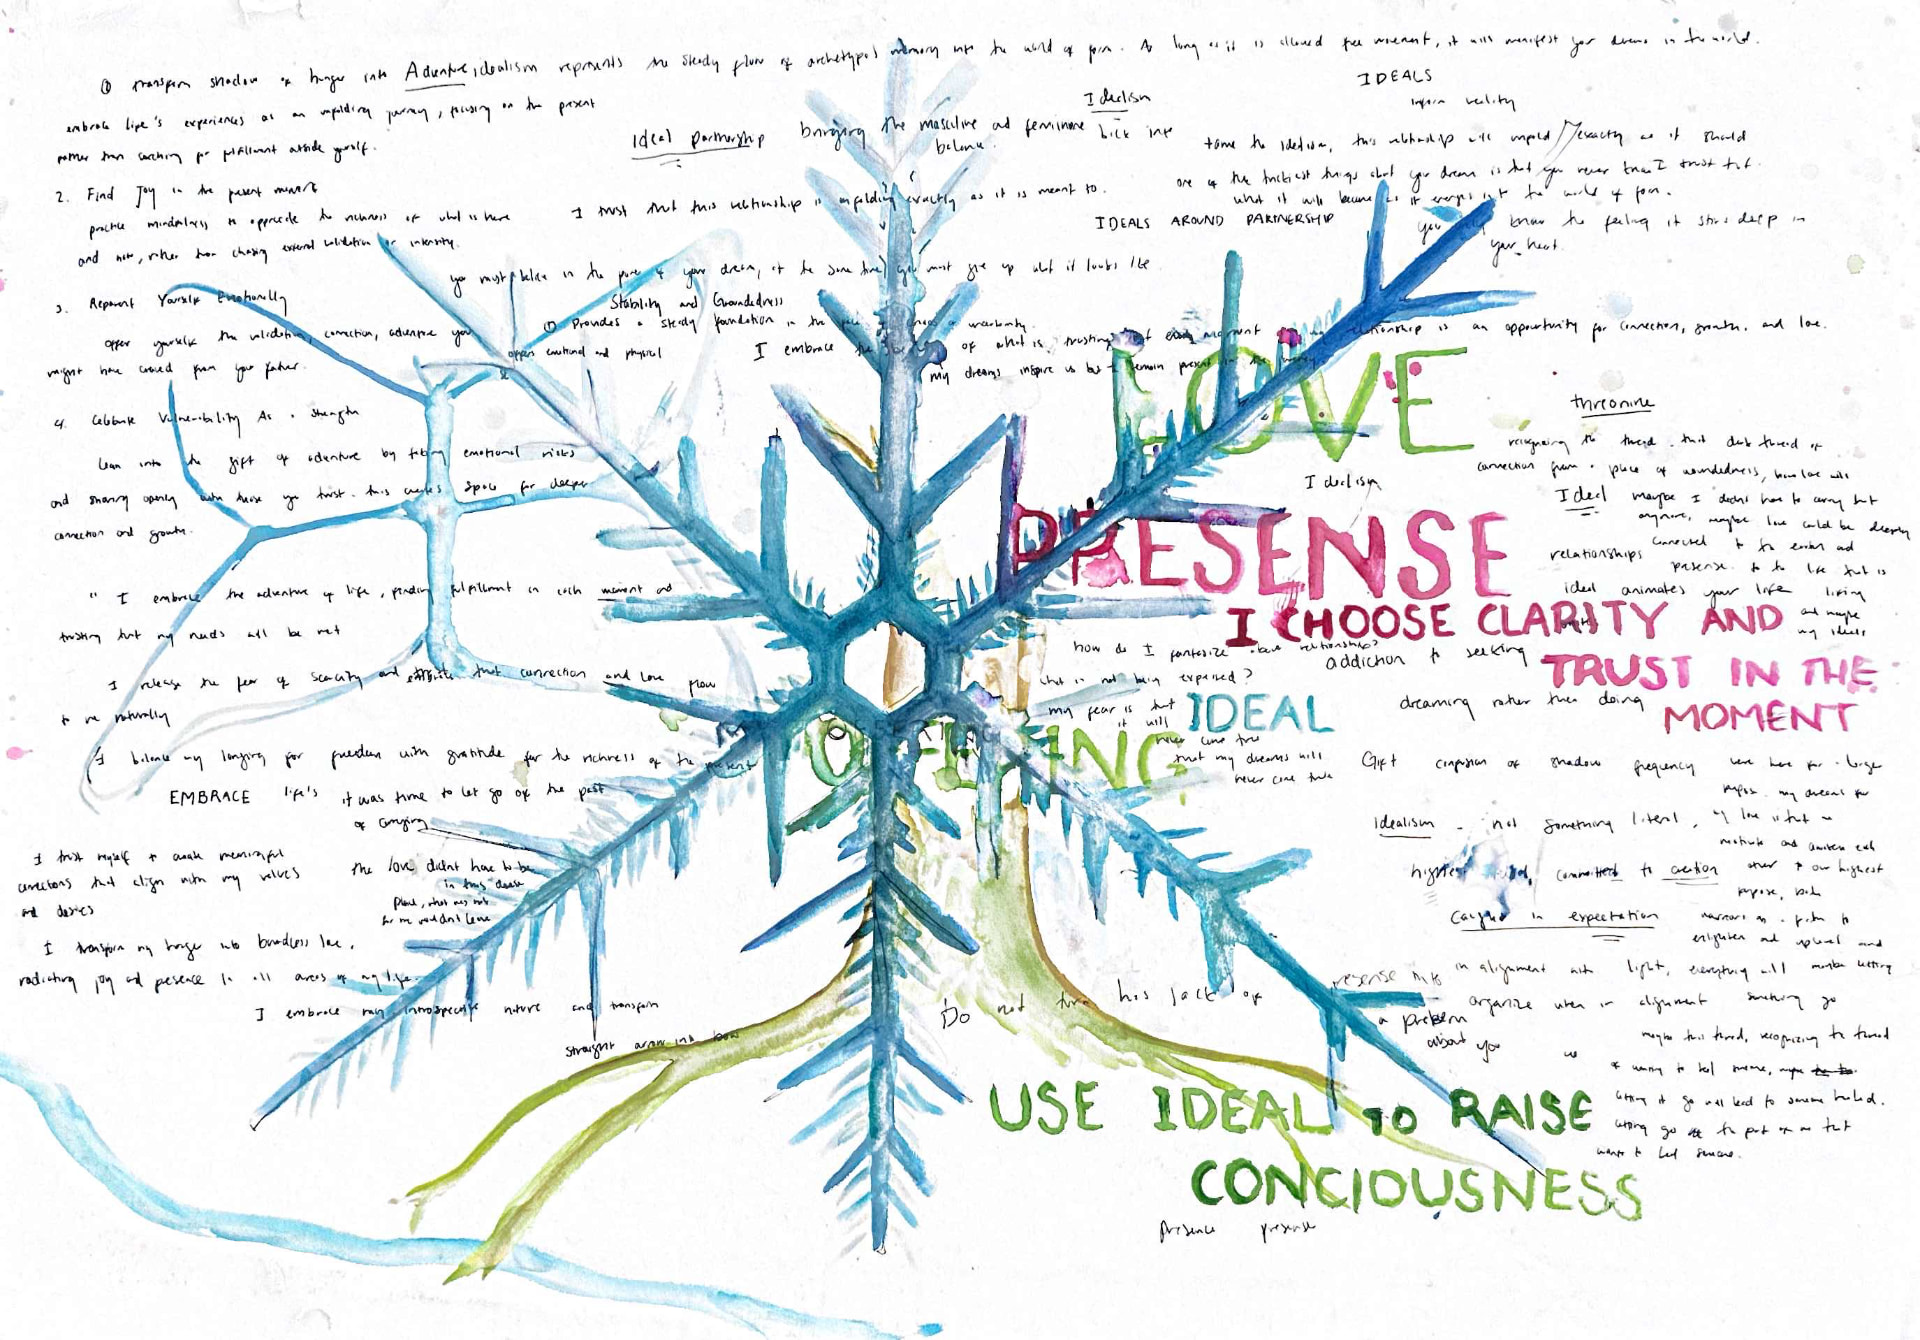 ① transform shadow of hunger into Adventure, idealism represents the steady flow of archetypal memory into the world of form. As long as it is allowed free movement, it will manifest your dreams in the world.
embrace life's experiences as an unfolding journey, focusing on the present
rather than searching for fulfillment outside yourself.
2. Find Joy in the present moment
practice mindfulness to appreciate the richness of what is here
and now, rather than chasing external validation or intensity.
3. Reparent Yourself Emotionally
offer yourself the validation, connection, adventure you
might have craved from your father.
4. Celebrate Vulnerability As a strength
Lean into the gift of adventure by taking emotional risks
and sharing openly with those you trust. this creates space for deeper
connection and growth.
" I embrace the adventure of life, finding fulfillment in each moment and
trusting that my needs will be met
I release the fear of scarcity and that connection and love flow
to me naturally
I balance my longing for freedom with gratitude for the richness of the present
EMBRACE life's
it was time to let go of the past
of carrying
I trust myself to create meaningful
connections that align with my values
and desires
the love didnt have to be
in this
I transform my hunger into boundless love,
radiating joy and presence in all areas of my life.
I embrace my introspective nature and transform
straight arrow into bow
Idealism
Ideal partnership
bringing the masculine and feminine back into
balance.
I trust that this relationship is unfolding exactly as it is meant to.
you must believe in the power of your dream, at the same time you must give up what it looks like
Stability and Groundedness
① Provides a steady foundation in the of or uncertainty.
offers emotional and physical
I embrace the of what is, trusting that every moment in my relationship is an opportunity for connection, growth, and love.
my dreams inspire us but I remain present in the
IDEALS
inform reality
tame the idealism, this relationship will unfold exactly as it should
one of the trickiest things about your dream is that you never I trust that
what it will become as it emerges into the world of form.
IDEALS AROUND PARTNERSHIP
you only know the feeling it stirs deep in
your heart.
LOVE
threonine
recognizing the thread. that dark thread of
connection from a place of woundedness, how love will
Idealism
Ideal
maybe I didnt have to carry that
anymore, maybe love could be deeply
connected to the and
PRESENSE
relationships
presense to the life that is
ideal animates your life
living
and maybe
my ideals
I CHOOSE CLARITY AND
TRUST IN THE
MOMENT
how do I fantasize about relationships?
what is not being expressed?
addiction to seeking
dreaming rather than doing
my fear is that
it will
never come true
IDEAL
that my dreams will
never come true
Gift confusion of shadow frequency were here for a larger
purpose. my dreams for
Idealism - not something literal, my love is that we
motivate and awaken each
other to our highest
purpose, both
highest committed to creation
Caught in expectation
enlighten and uplevel and
presense in alignment with light, everything will
maybe letting
organize when in alignment
something go
Do not turn his lack of
a problem
about you
maybe this thread, recognizing the thread
of wanting to heal someone,
letting it go will lead to someone healed.
letting go of the part of me that
wants to heal someone.
USE IDEAL TO RAISE
CONCIOUSNESS
presence presense